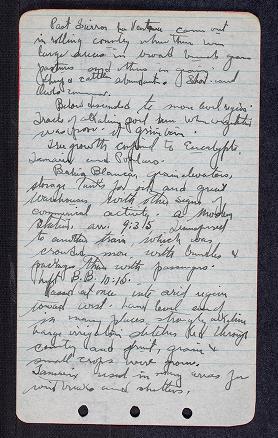 Past Sierra La Ventana came out
in rolling country where there were
large areas in broad bunch grass
pastures and others in grain
Sheep & cattle abundant. and
Rhea common.
Below descended to more level region.
Tracts of alkaline soil seen where vegetation
was poor.
Tree growth confined to Eucalypts,
Tamarix and Poplars.
Bahia Blanca, grain elevators,
storage tanks for oil and great
warehouses with other signs of
commercial activity. a modern
station. arr. 9:35. Transferred
to another train which was
crowded more with bundles &
packages than with passengers.
Left B.B. 10:15.
Passed at once into arid region
toward west. Land level and
in many places strongly alkaline
Large irrigation ditches led through
country and fruit, grain &
small crops were grown.
Tamarix used in many areas for
wind breaks and shelters.